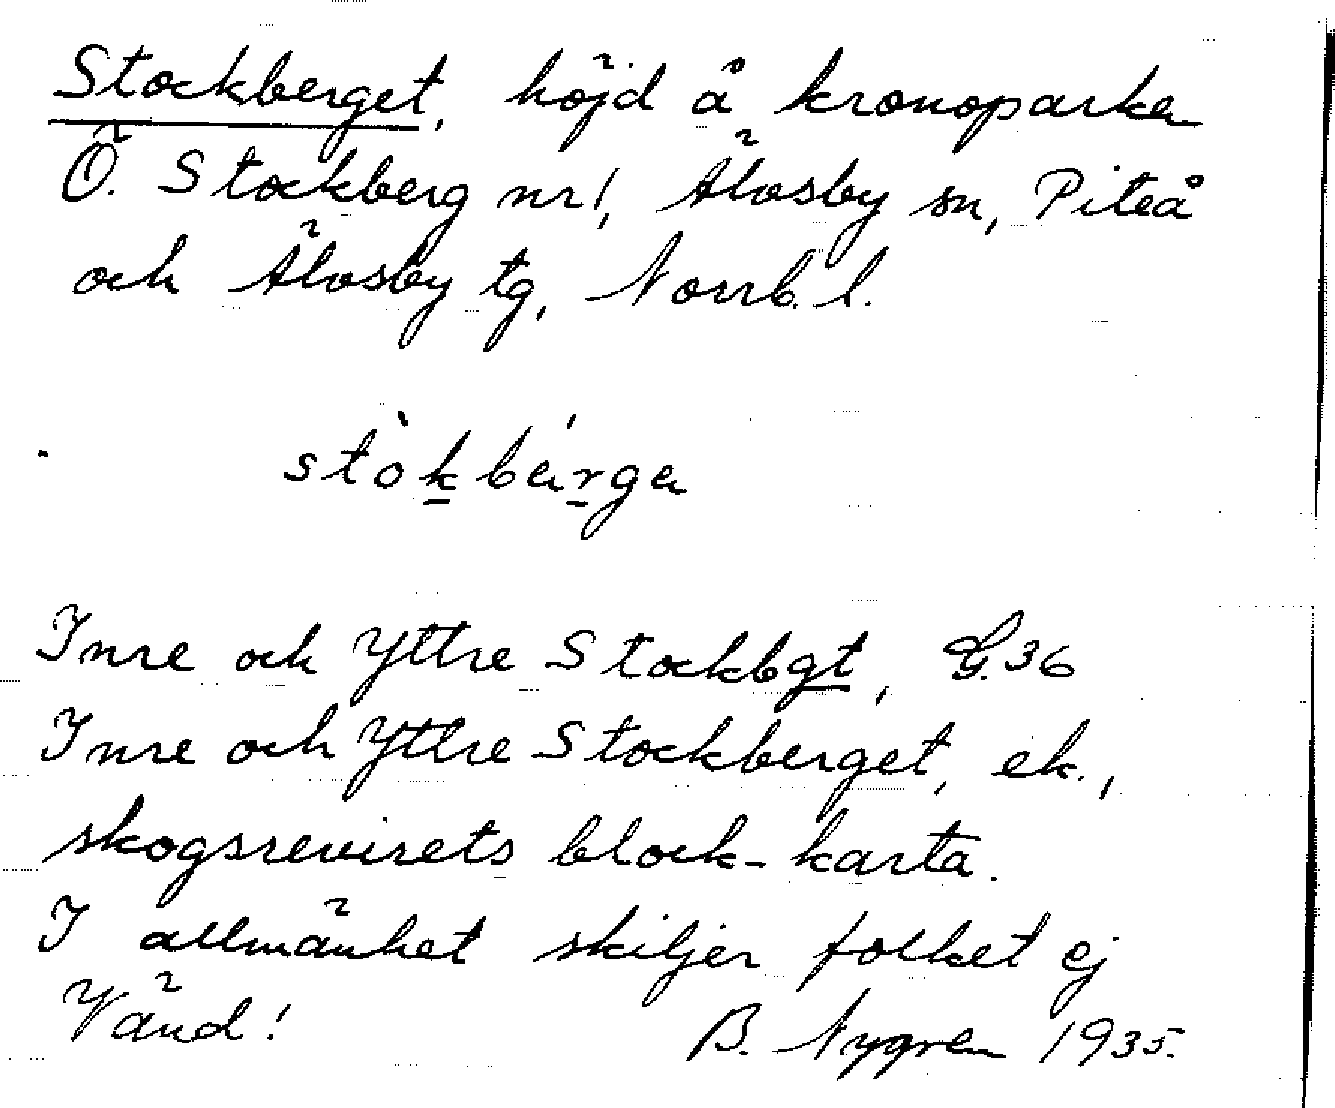 Stockberget, höjd å kronoparken
Ö. Stockberg nr 1, Älvsby sn, Piteå
och Älvsby tg, Norrb. l.
stòkbárga
Inre och Yttre Stockbgt, G. 36
Inre och Yttre Stockberget, ek.,
skogsrevirets block-karta.
I allmänhet skiljer folket ej
Vänd! B. Nygren 1935.